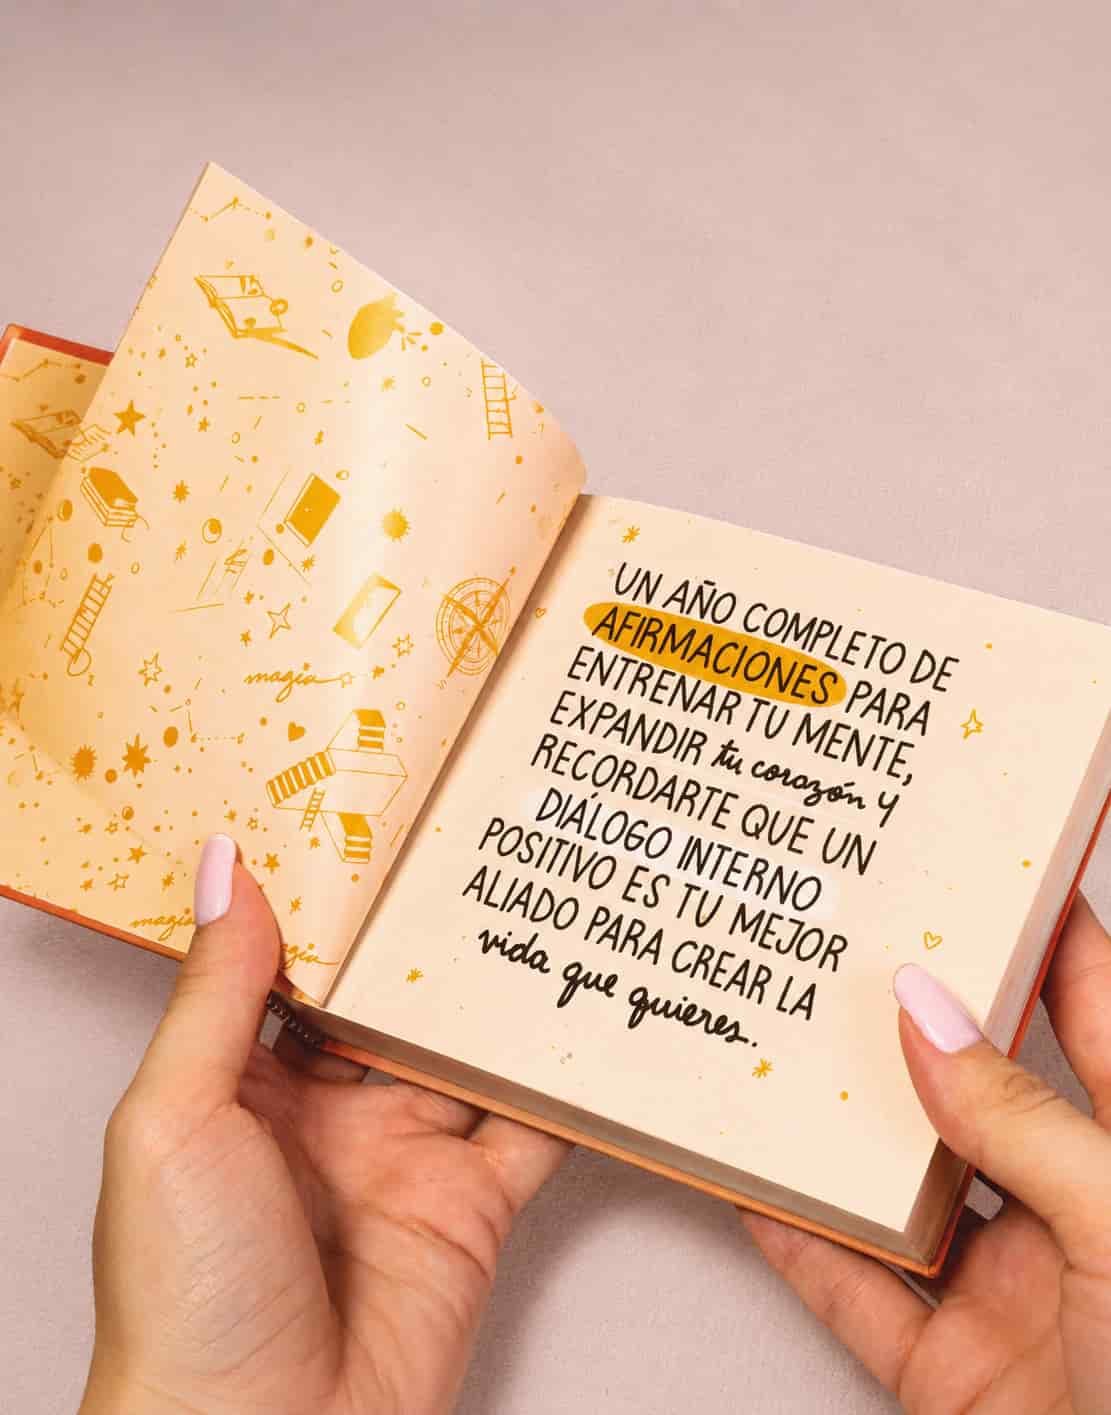 magia
magia
UN AÑO COMPLETO DE
AFIRMACIONES PARA
ENTRENAR TU MENTE,
EXPANDIR tu corazón Y
RECORDARTE QUE UN
DIÁLOGO INTERNO
POSITIVO ES TU MEJOR
ALIADO PARA CREAR LA
vida que quieres.